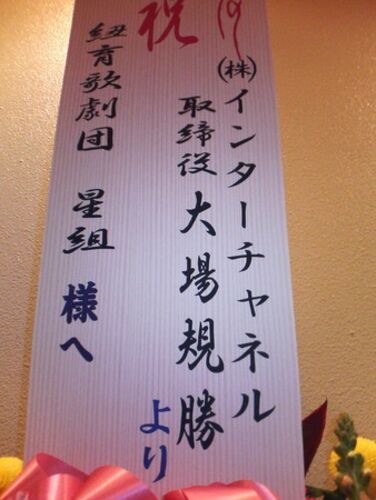 祝
㈱インターチャネル
取締役 大場規勝
より
紐育歌劇団 星組 様へ